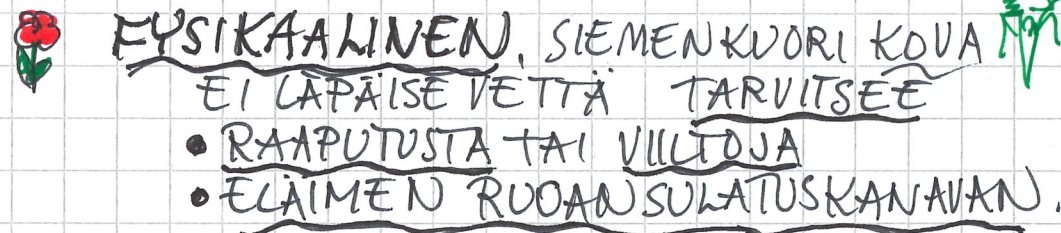 FYSIKAALINEN. SIEMENKUORI KOVA
EI LÄPÄISE VETTÄ TARVITSEE
• RAAPUTUSTA TAI VIILTOJA
• ELÄIMEN RUOANSULATUSKANAVAN.